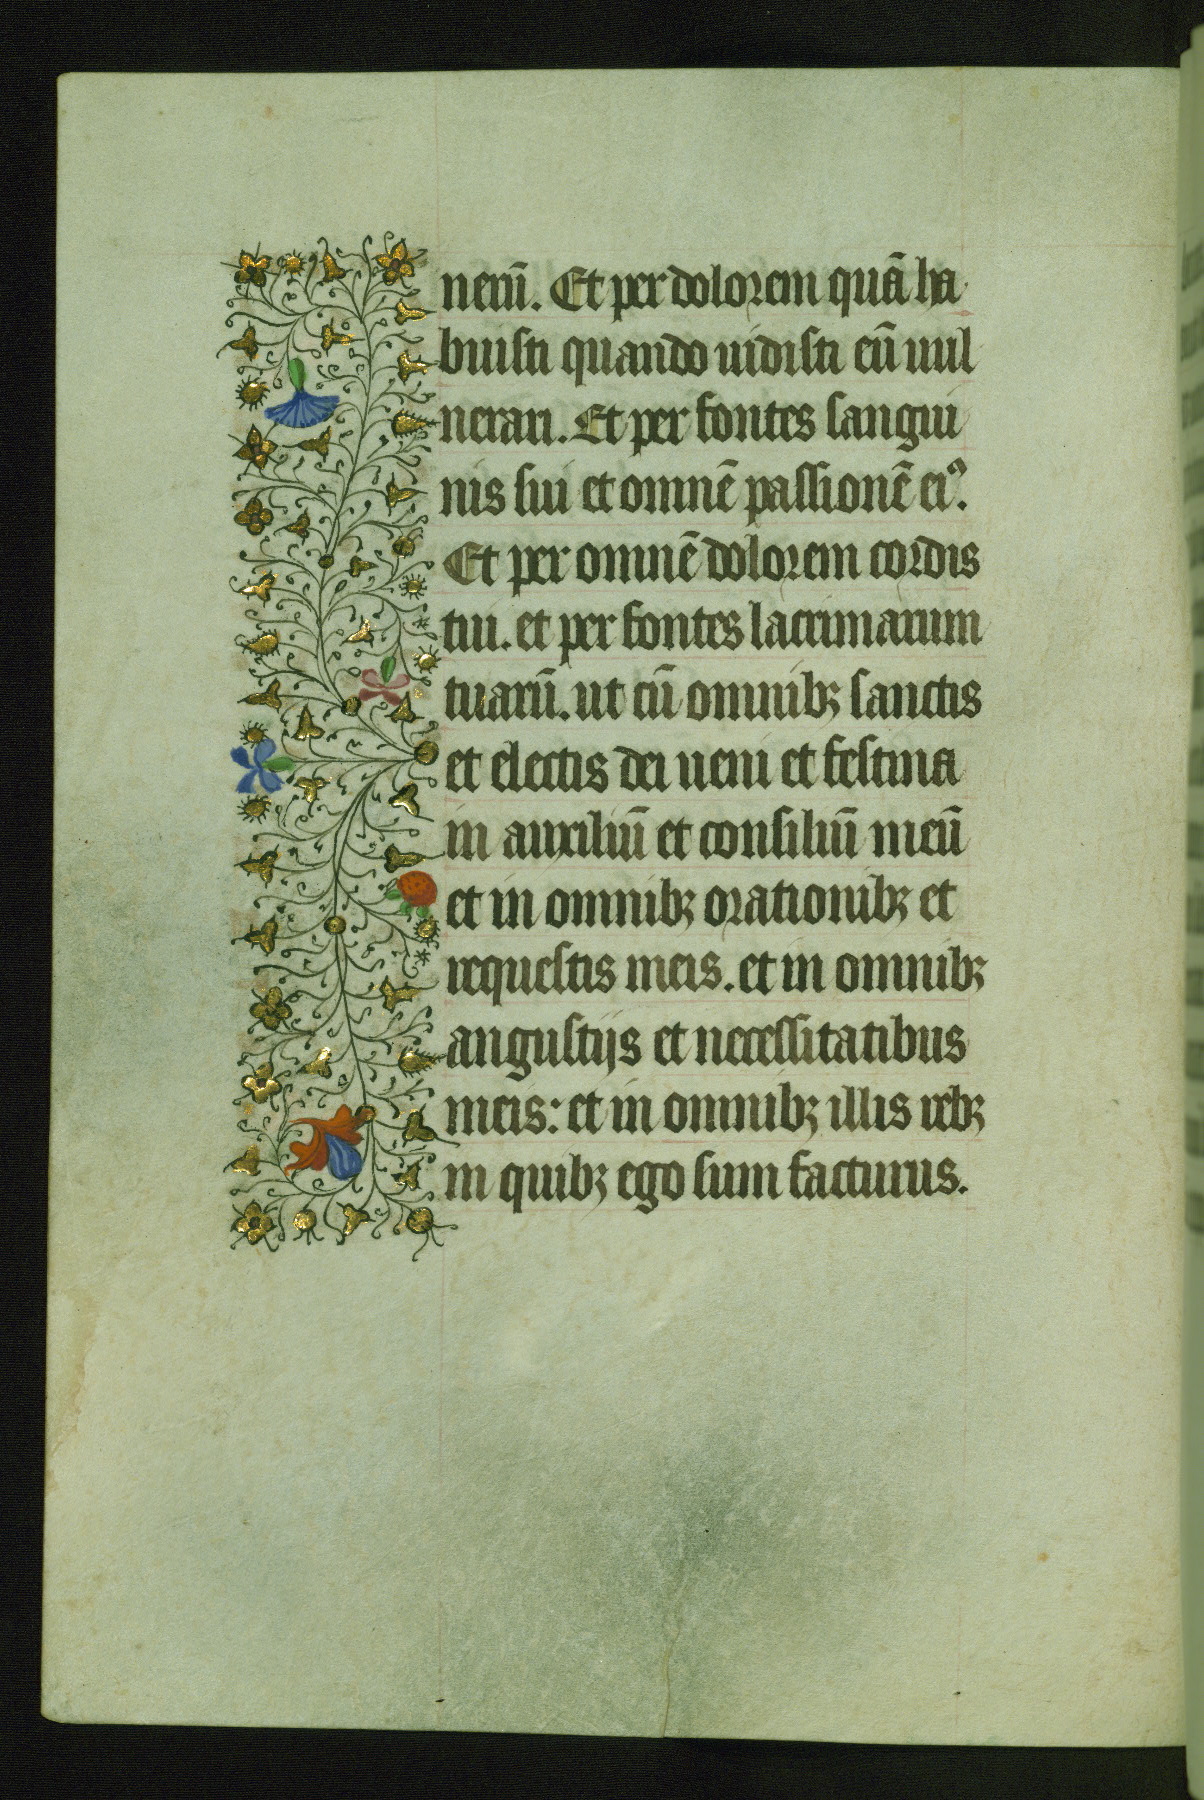 nem̄. Et per dolorem quā ha
buisti quando uidisti eū uul
nerari. Et per fontes sangui
nis sui et omnē passionē eiꝰ.
Et per omnē dolorem cordis
tui. et per fontes lacrimarum
tuarū. ut cū omnibꝫ sanctis
et electis dei ueni et festina
in auxiliū et consiliū meū
et in omnibꝫ orationibꝫ et
requestis meis. et in omnibꝫ
angustijs et necessitatibus
meis: et in omnibꝫ illis rebꝫ
in quibꝫ ego sum facturus.